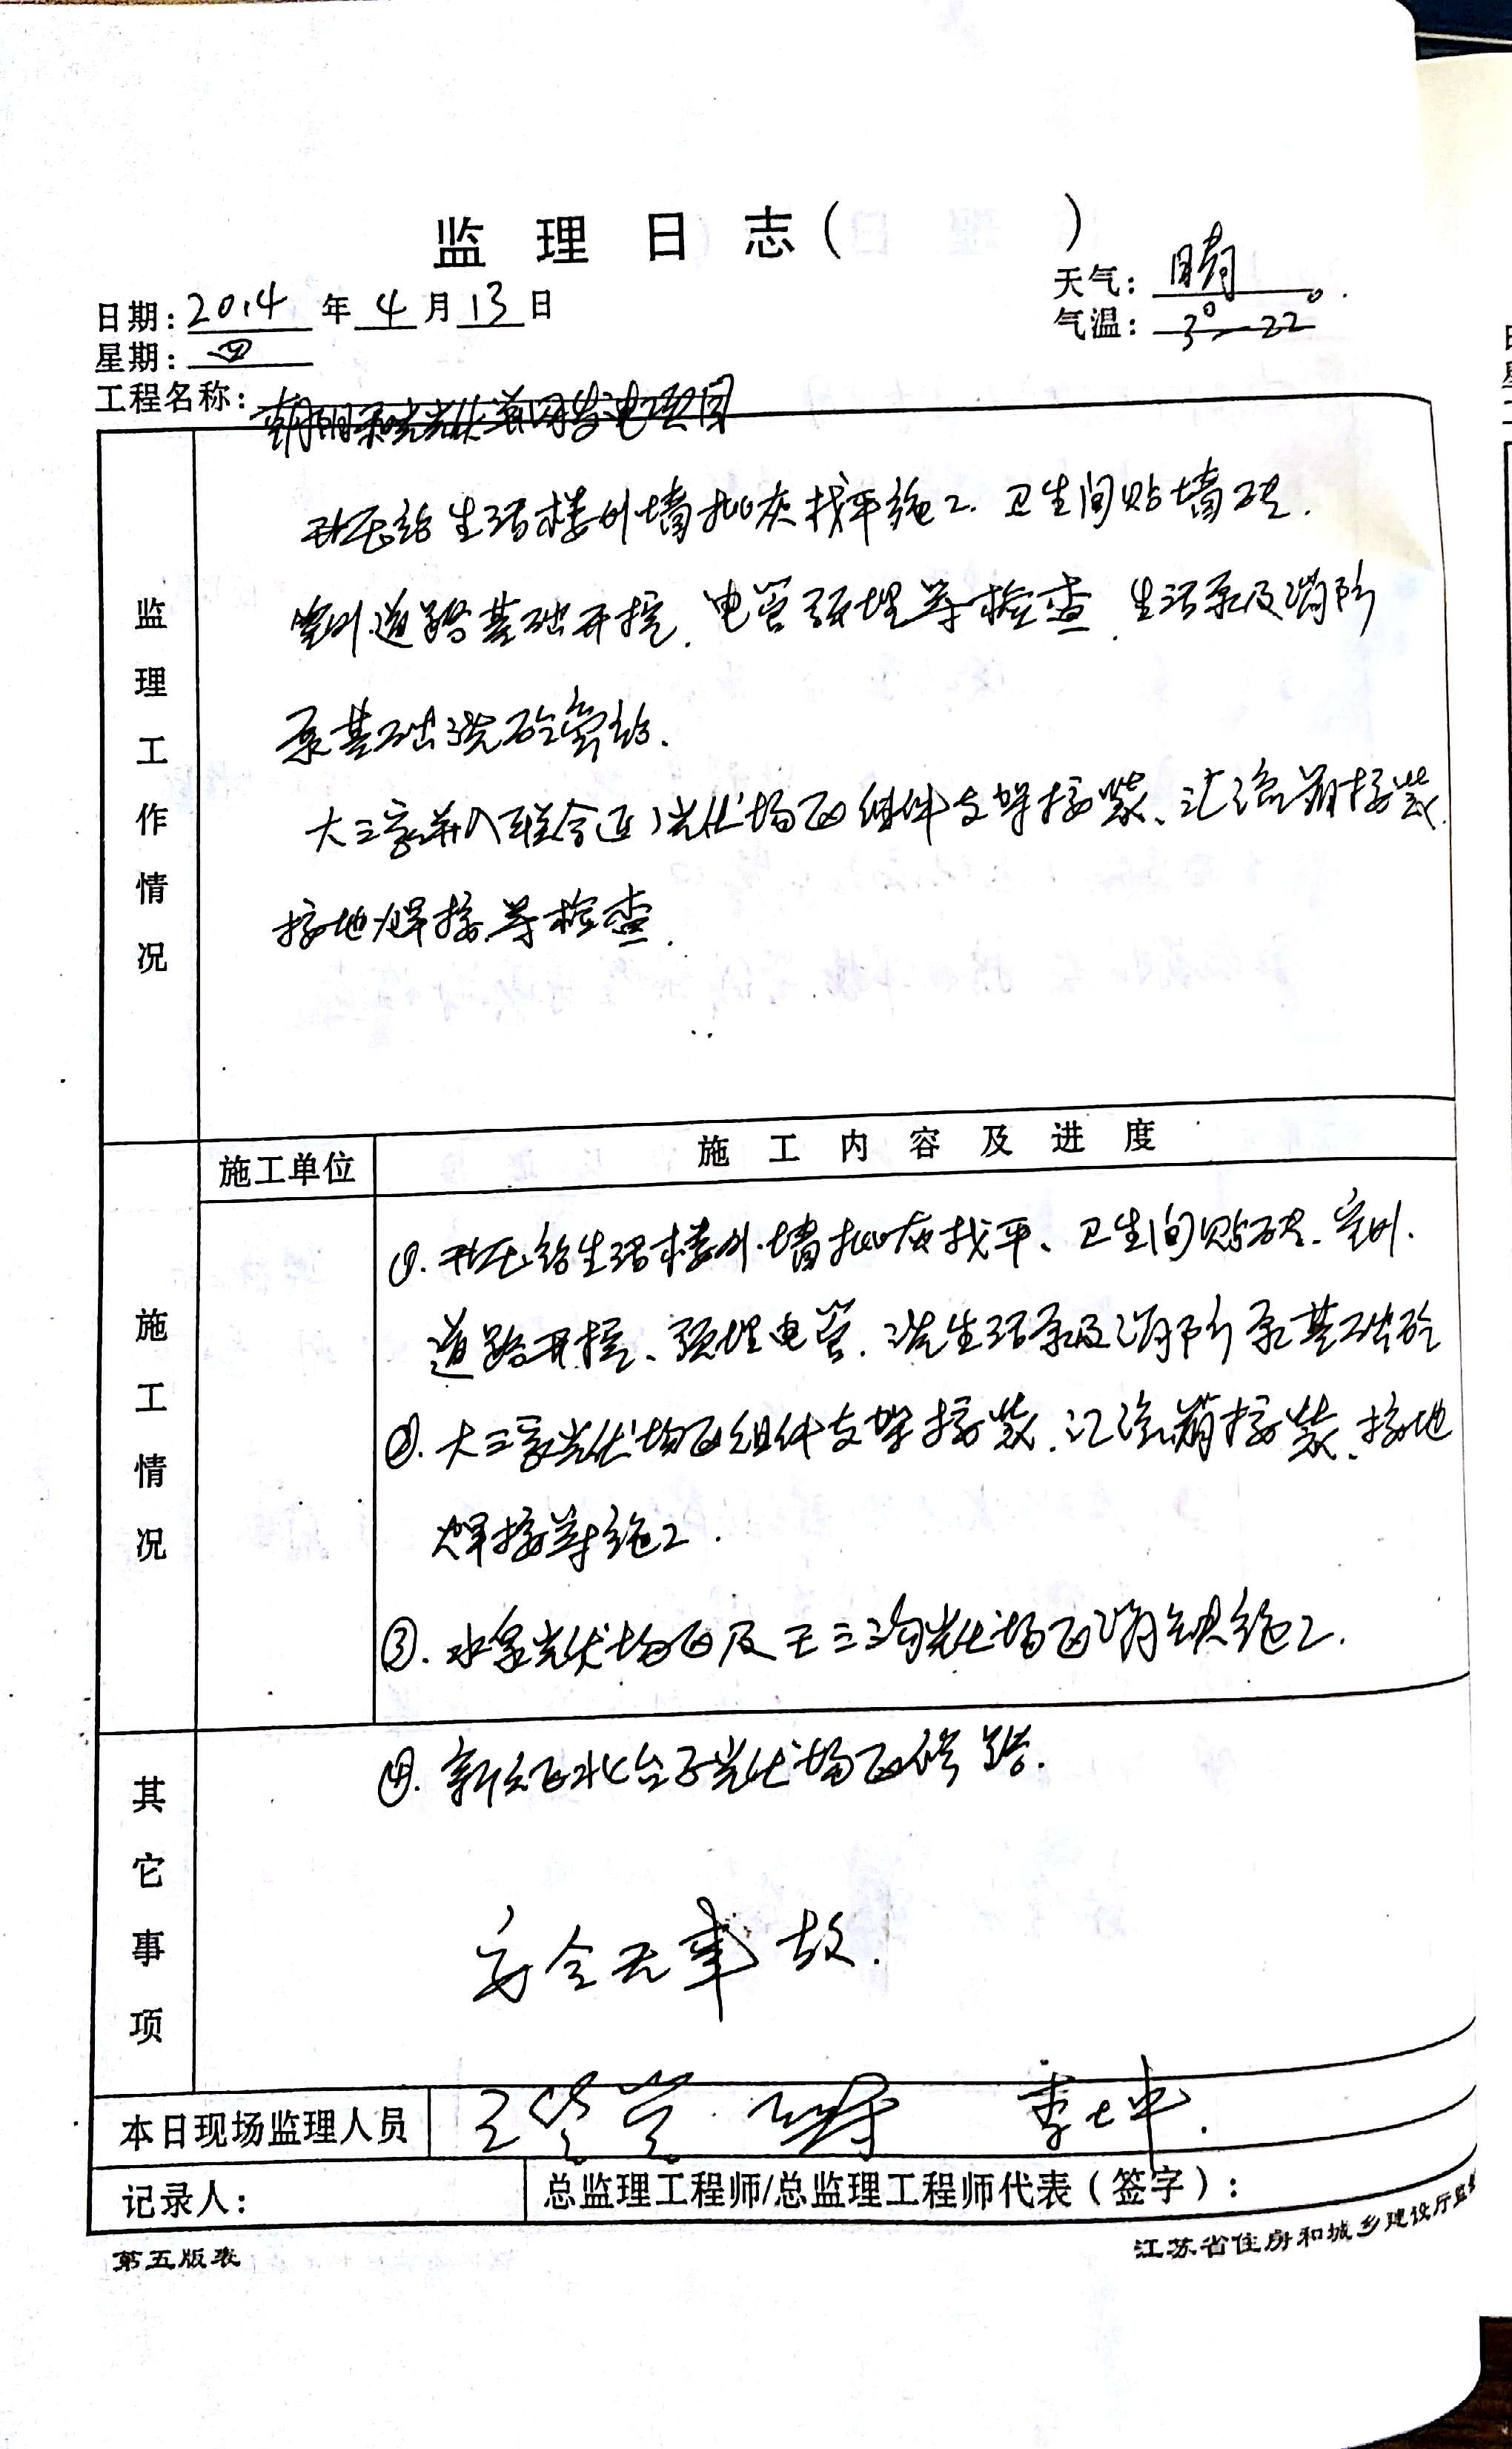 监理日志（ ）
日期：2014年4月13日
天气：晴
星期：四
气温：3°—22°
工程名称：朝阳 光伏并网发电项目
监理工作情况
升压站生活楼外墙批灰找平施工. 卫生间贴墙砖.
室外道路基础开挖. 电管预埋等检查. 生活泵及消防
泵基础浇砼旁站.
大三家 光伏场区组件支架接装、汇流箱接装.
接地焊接等检查.
施工单位
施工内容及进度
施工情况
①. 升压站生活楼外墙批灰找平、卫生间贴砖. 室外.
道路开挖、预埋电管. 浇生活泵及消防泵基础砼
②. 大三家光伏场区组件支架接装. 汇流箱接装. 接地
焊接等施工.
③. 水泉光伏场区及 光伏场区消缺施工.
其它事项
④. 台子光伏场区修路.
安全无事故.
本日现场监理人员
记录人：
总监理工程师/总监理工程师代表（签字）：
第五版表
江苏省住房和城乡建设厅监